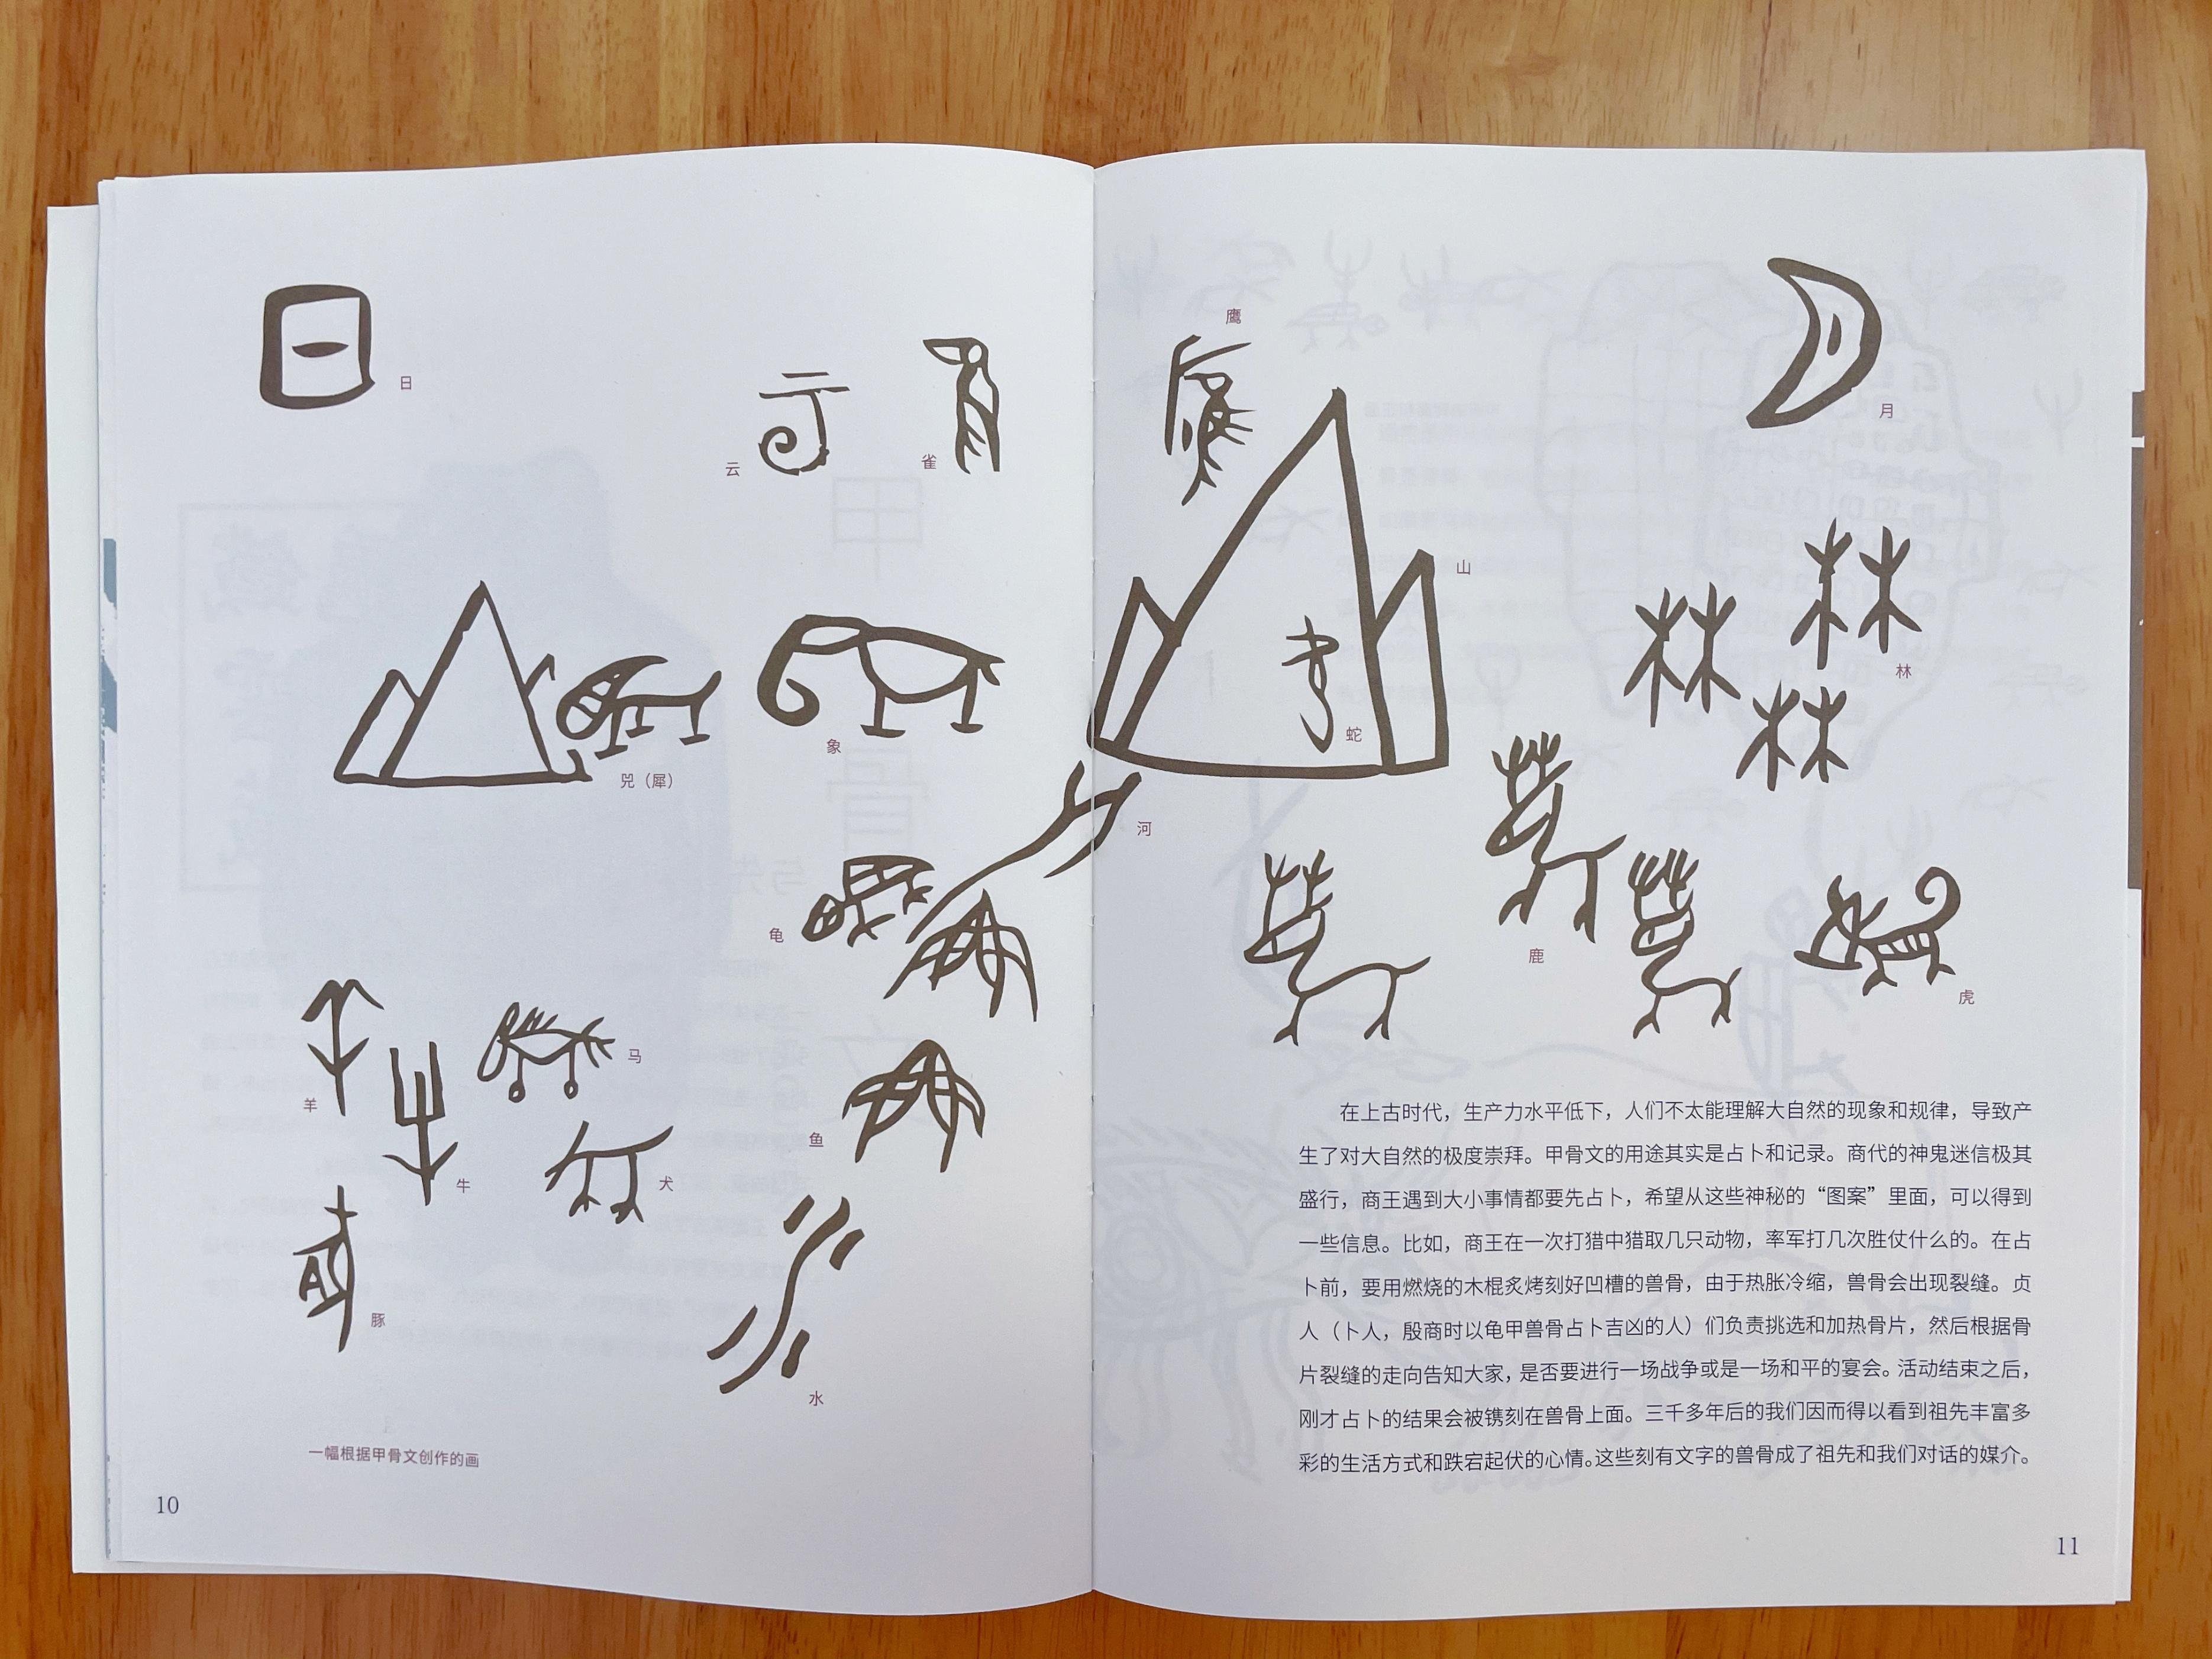 日
云
雀
兕（犀）
象
龟
羊
马
牛
犬
鱼
豚
水
一幅根据甲骨文创作的画
10
鹰
月
山
林
蛇
河
鹿
虎
在上古时代，生产力水平低下，人们不太能理解大自然的现象和规律，导致产
生了对大自然的极度崇拜。甲骨文的用途其实是占卜和记录。商代的神鬼迷信极其
盛行，商王遇到大小事情都要先占卜，希望从这些神秘的“图案”里面，可以得到
一些信息。比如，商王在一次打猎中猎取几只动物，率军打几次胜仗什么的。在占
卜前，要用燃烧的木棍炙烤刻好凹槽的兽骨，由于热胀冷缩，兽骨会出现裂缝。贞
人（卜人，殷商时以龟甲兽骨占卜吉凶的人）们负责挑选和加热骨片，然后根据骨
片裂缝的走向告知大家，是否要进行一场战争或是一场和平的宴会。活动结束之后，
刚才占卜的结果会被镌刻在兽骨上面。三千多年后的我们因而得以看到祖先丰富多
彩的生活方式和跌宕起伏的心情。这些刻有文字的兽骨成了祖先和我们对话的媒介。
11